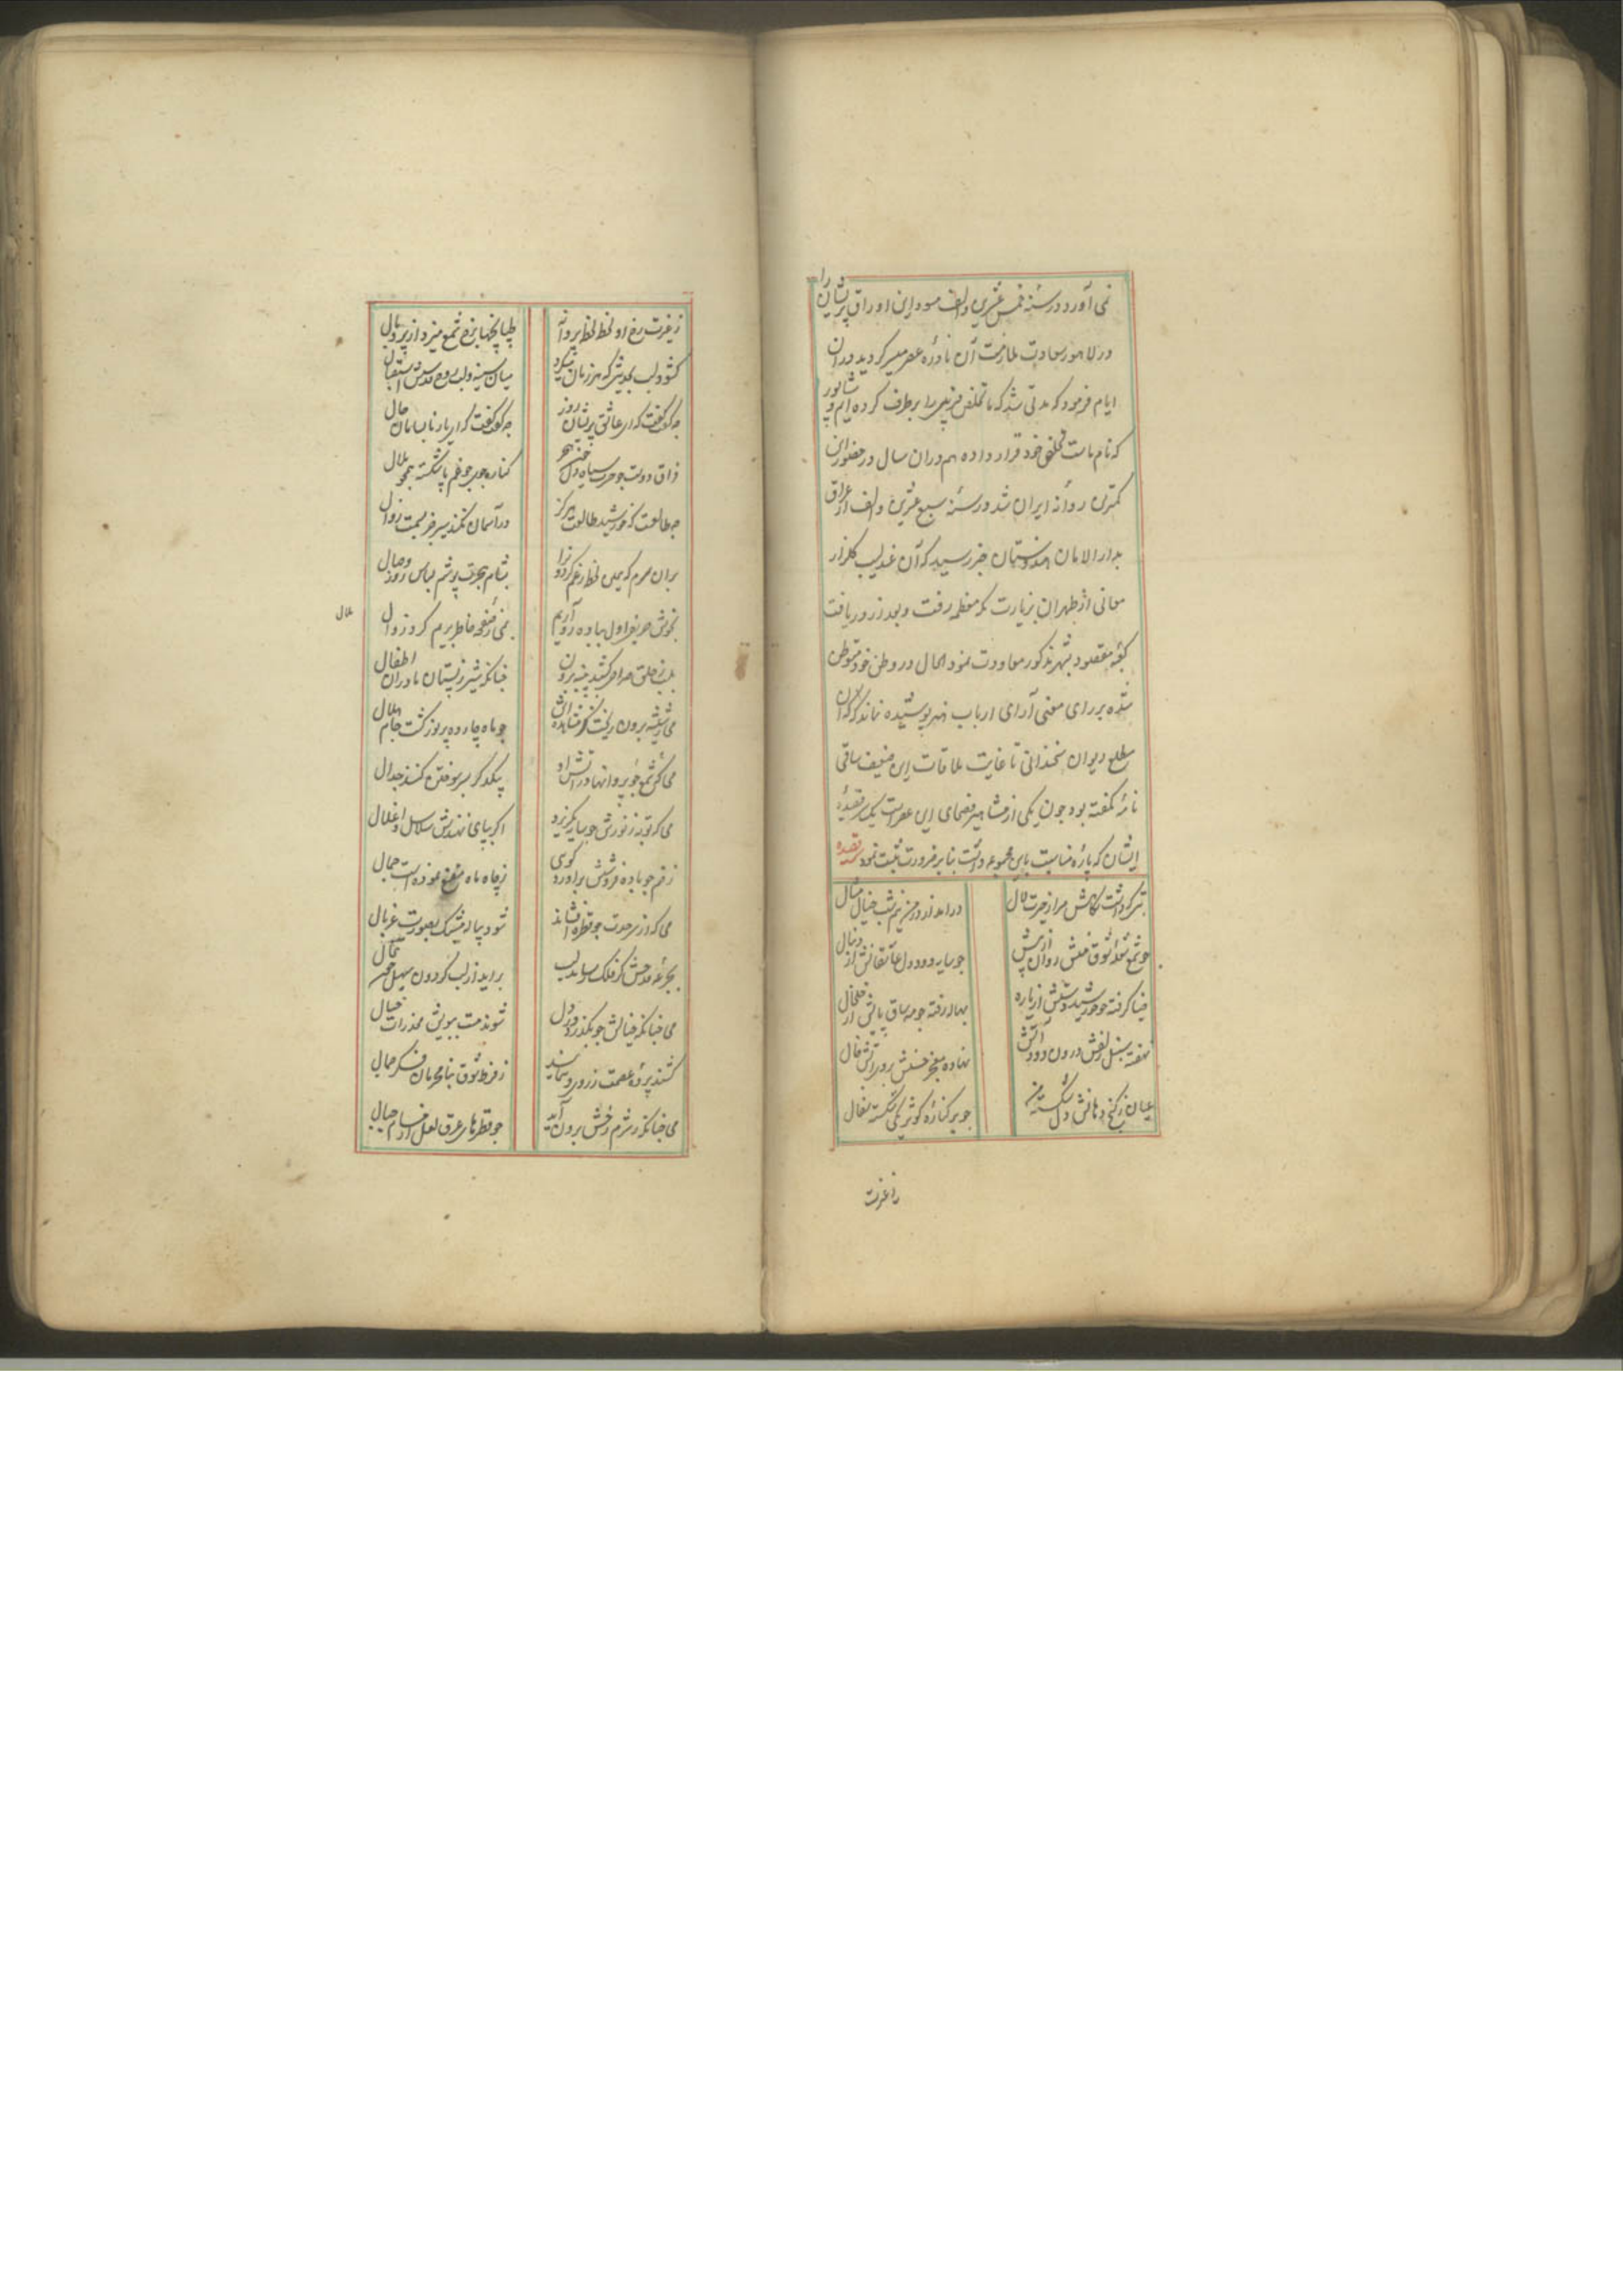 نمی آورد در سنه خمس عشرین و الف مسود این اوراق پریشان را
در لاهور سعادت ملازمت آن نادره عصر میسر کردید در ان
ایام فرمود که مدتی شد که ما تخلص فریبی را بر طرف کرده ایم و شاپور
که نام ماست تخلص خود قرار داده هم در ان سال در حضور این
کمترین روانه ایران شد در سنه سبع عشرین و الف از عراق
بدار الامان هندوستان خبر رسید که آن عندلیب کلزار
معانی از طهران بزیارت مکه معظمه رفت و بعد از دریافت
کعبه مقصود بشهر مذکور معاودت نمود الحال در وطن خود متوطن
شده بر رای معنی آرای ارباب هنر پوشیده نماند که آن
مطلع دیوان سخندانی تا غایت ملاقات این ضعیف ساقی
نامه نکفته بود چون یکی از مشاهیر فصحای این عصر است یک قصیده
ایشان که پاره مناسبت باین مجموعه داشت بنا بر ضرورت ثبت نمود قصیده
بتی که داشت نکاهش مرا ز حیرت لال
در امد از در من نیم شب خیال مثال
چو شمع شعله شوق منش روان از پیش
چو سایه دود دل عاشقانش از دنبال
ضیا کرفته چو خورشید دستش از یاره
بهاله رفته چو مه ساق پایش از خلخال
نهفته سنبل زلفش درون دود آتش
نهاده معجز حسنش بروی آتش خال
عیان ز کنج دهانش دل شکسته من
چو بر کناره کوثر یکی شکسته سفال
ز غیرت
ز غیرت رخ او لحظ لحظ پروانه
طپانچها برخ شمع میزد از پر و بال
کشود لب بحدیثی که هر زمان میکرد
میان سینه و لب روح قدسش استقبال
چه کفت کفت که ای عاشق پریشان روز
چه کفت کفت که ای یار نابسامان حال
در آسمان نکند سیر جز بسمت زوال
بر آن سرم که همین لحظ رغم کردون را
بشام هجرت پوشم لباس روز وصال
بخوش حریف اول بباده رو آریم
ملال
چنانکه شیر ز پستان مادران اطفال
می ز شیشه برون ریخت کز مشاهده اش
چو ماه چارده پر نور کشت جام هلال
می کش شمع چو پروانها در آتش او
بیکدکر بسر سوختن کنند جدال
اکر بپای نهندش سلاسل و اغلال
ز خم چو باده فروشش براورد کوی
ز چاه ماه مقنع نموده است جمال
می که از سر حدت چو قطره افشاند
شود پیاله فیتیک بصورت غربال
بجرعه قدحش کر فلک رساند لب
براید از لب کردون سهیل تبخال
می چنانکه خیالش چو بکذرد در دل
شوند مست ببویش مخدرات خیال
کشند پرده عصمت ز روی و بنمایند
ز فرط شوق بنامحرمان فکر جمال
می چنانکه ز شرم رخش برون آید
چو قطرهای عرق لعل از مسام جبال